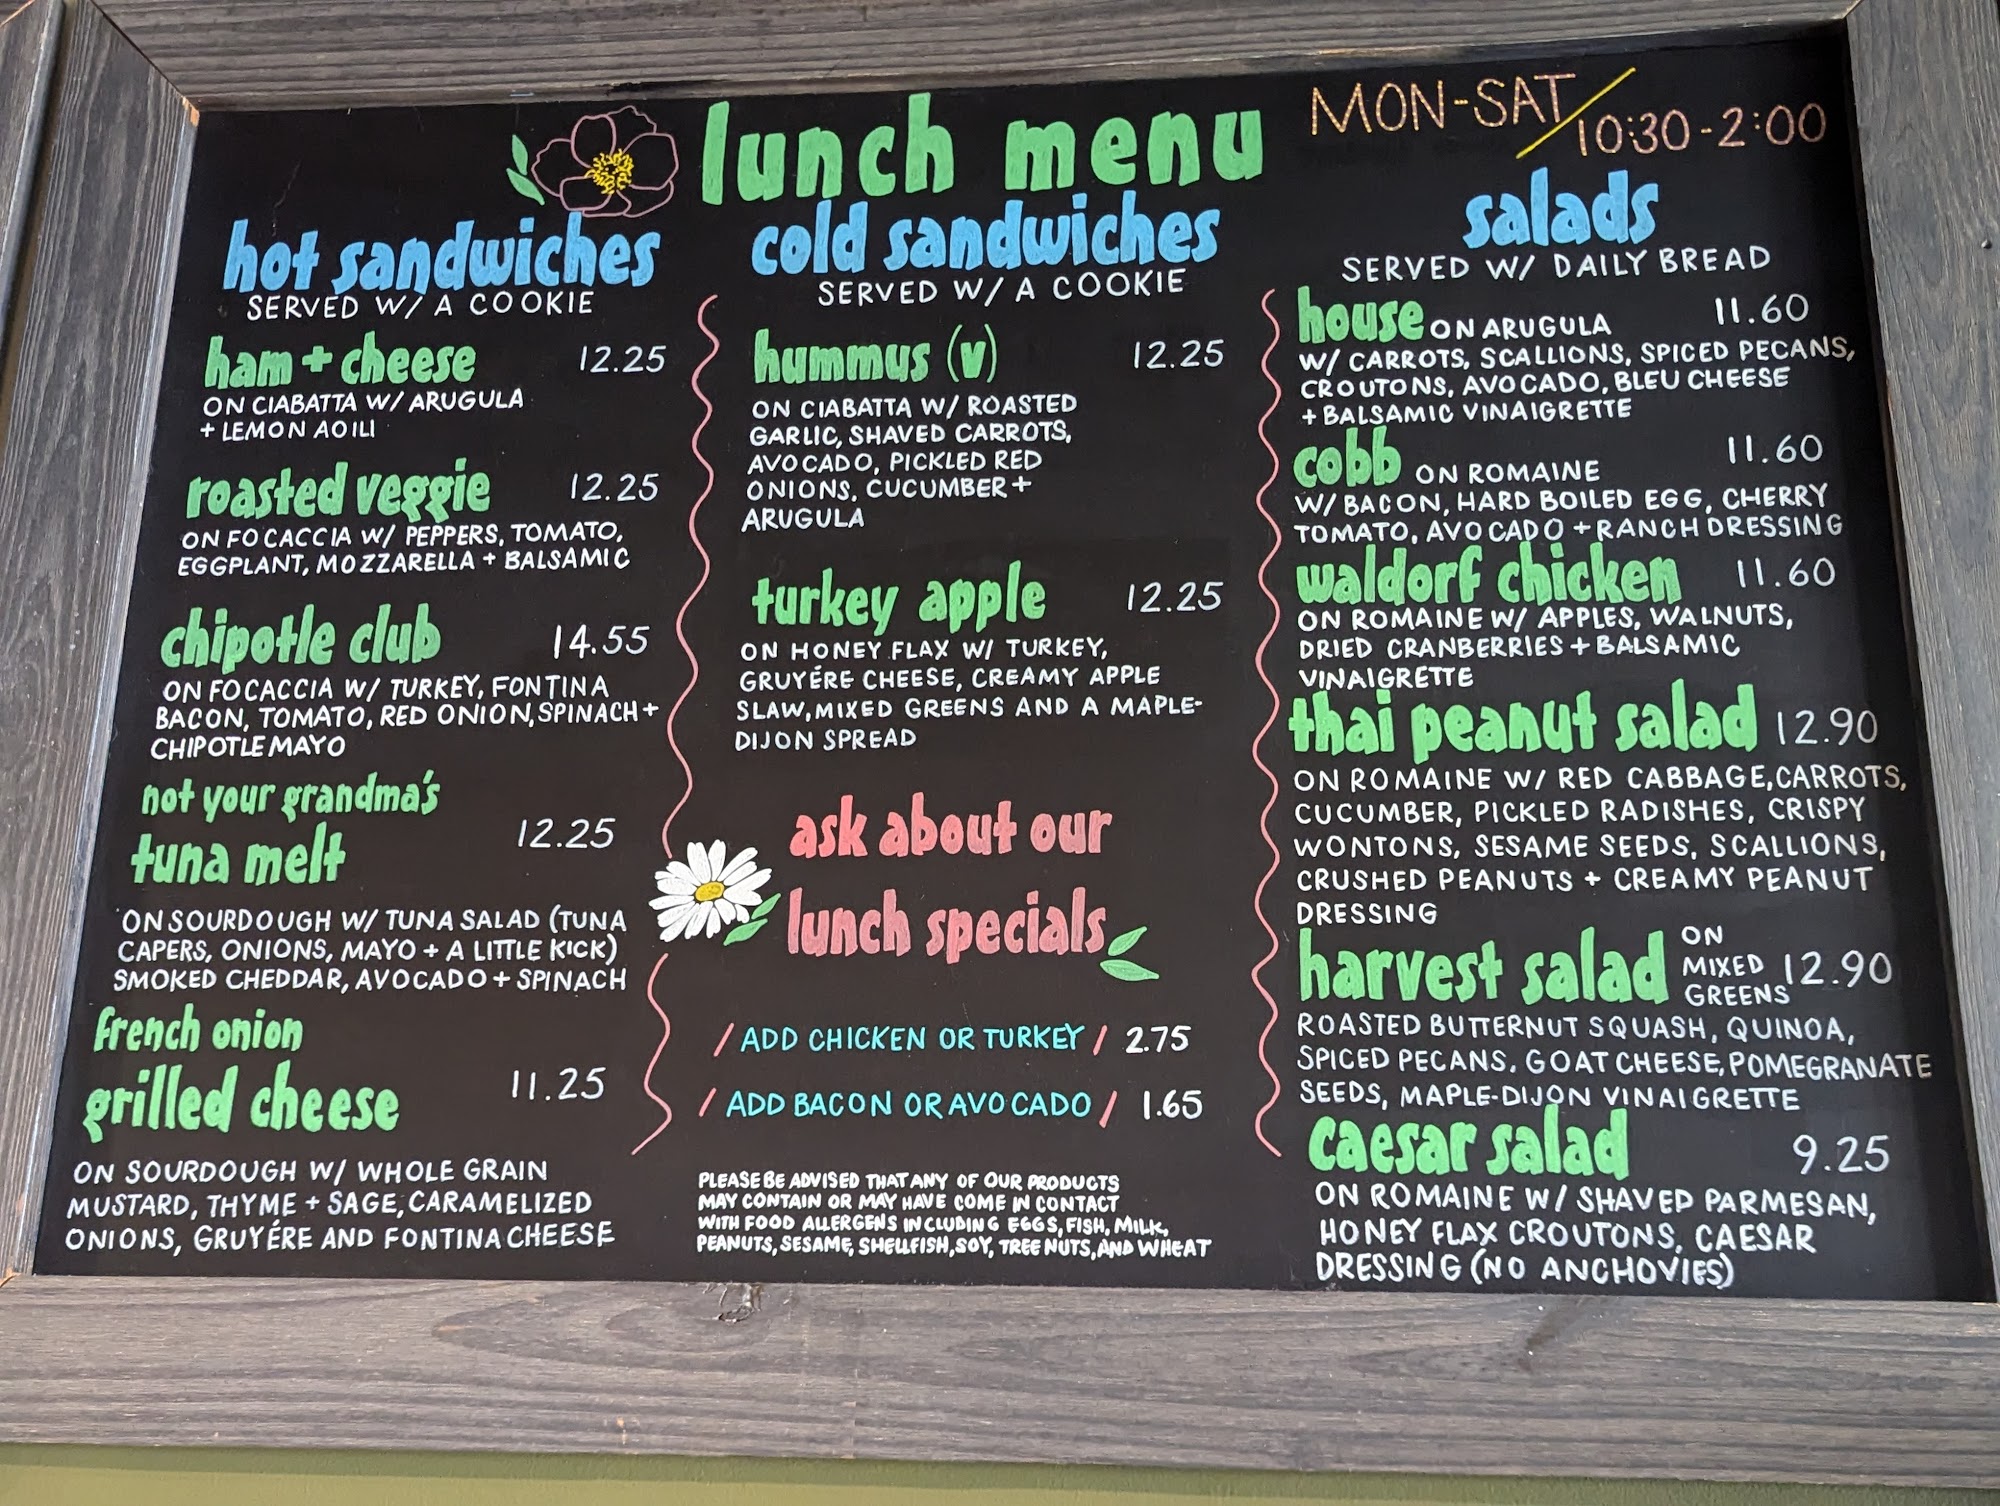 lunch menu
MON-SAT/10:30-2:00
hot sandwiches
SERVED W/ A COOKIE
ham + cheese 12.25
ON CIABATTA W/ ARUGULA
+ LEMON AOILI
roasted veggie 12.25
ON FOCACCIA W/ PEPPERS, TOMATO,
EGGPLANT, MOZZARELLA + BALSAMIC
chipotle club 14.55
ON FOCACCIA W/ TURKEY, FONTINA
BACON, TOMATO, RED ONION, SPINACH +
CHIPOTLE MAYO
not your grandma's
tuna melt 12.25
ON SOURDOUGH W/ TUNA SALAD (TUNA
CAPERS, ONIONS, MAYO + A LITTLE KICK)
SMOKED CHEDDAR, AVOCADO + SPINACH
french onion
grilled cheese 11.25
ON SOURDOUGH W/ WHOLE GRAIN
MUSTARD, THYME + SAGE, CARAMELIZED
ONIONS, GRUYÉRE AND FONTINA CHEESE
cold sandwiches
SERVED W/ A COOKIE
hummus (v) 12.25
ON CIABATTA W/ ROASTED
GARLIC, SHAVED CARROTS,
AVOCADO, PICKLED RED
ONIONS, CUCUMBER +
ARUGULA
turkey apple 12.25
ON HONEY FLAX W/ TURKEY,
GRUYÉRE CHEESE, CREAMY APPLE
SLAW, MIXED GREENS AND A MAPLE-
DIJON SPREAD
ask about our
lunch specials
/ ADD CHICKEN OR TURKEY / 2.75
/ ADD BACON OR AVOCADO / 1.65
PLEASE BE ADVISED THAT ANY OF OUR PRODUCTS
MAY CONTAIN OR MAY HAVE COME IN CONTACT
WITH FOOD ALLERGENS INCLUDING EGGS, FISH, MILK,
PEANUTS, SESAME, SHELLFISH, SOY, TREE NUTS, AND WHEAT
salads
SERVED W/ DAILY BREAD
house ON ARUGULA 11.60
W/ CARROTS, SCALLIONS, SPICED PECANS,
CROUTONS, AVOCADO, BLEU CHEESE
+ BALSAMIC VINAIGRETTE
cobb ON ROMAINE 11.60
W/ BACON, HARD BOILED EGG, CHERRY
TOMATO, AVOCADO + RANCH DRESSING
waldorf chicken 11.60
ON ROMAINE W/ APPLES, WALNUTS,
DRIED CRANBERRIES + BALSAMIC
VINAIGRETTE
thai peanut salad 12.90
ON ROMAINE W/ RED CABBAGE, CARROTS,
CUCUMBER, PICKLED RADISHES, CRISPY
WONTONS, SESAME SEEDS, SCALLIONS,
CRUSHED PEANUTS + CREAMY PEANUT
DRESSING
harvest salad ON MIXED GREENS 12.90
ROASTED BUTTERNUT SQUASH, QUINOA,
SPICED PECANS, GOAT CHEESE, POMEGRANATE
SEEDS, MAPLE-DIJON VINAIGRETTE
caesar salad 9.25
ON ROMAINE W/ SHAVED PARMESAN,
HONEY FLAX CROUTONS, CAESAR
DRESSING (NO ANCHOVIES)